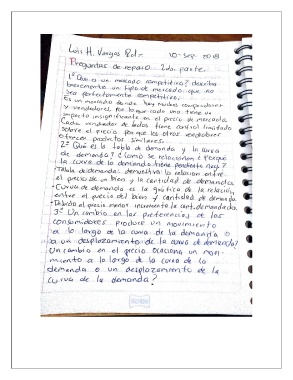 Luis H. Vargas Pol= 10-sep-2018
Preguntas de repaso 2da. parte.
1° Que es un mercado competitivo? describa
brevemente un tipo de mercado que no
sea perfectamente competitivo.
Es un mercado donde hay muchos compradores
y vendedores, por lo que cada uno tiene un
impacto insignificante en el precio de mercado.
Cada vendedor de helados tiene control limitado
sobre el precio porque los otros vendedores
ofrecen productos similares.
2° Qué es la tabla de demanda y la curva
de demanda? ¿Como se relacionan? ¿Porqué
la curva de la demanda tiene pendiente neg.?
•Tabla de demanda: demuestra la relacion entre
el precio de un bien y la cantidad de demandada
•Curva de demanda es la gráfica de la relacion,
entre el precio del bien y cantidad de demanda
precio menor incrementa la cant. demandada.
3° Un cambio en las preferencias de los
consumidores produce un movimiento
a lo largo de la curva de la demanda o
a un desplazamiento de la curva de demanda?
Un cambio en el precio ocaciona un movi-
miento a lo largo de la curva de la
demanda o un desplazamiento de la
curva de la demanda?